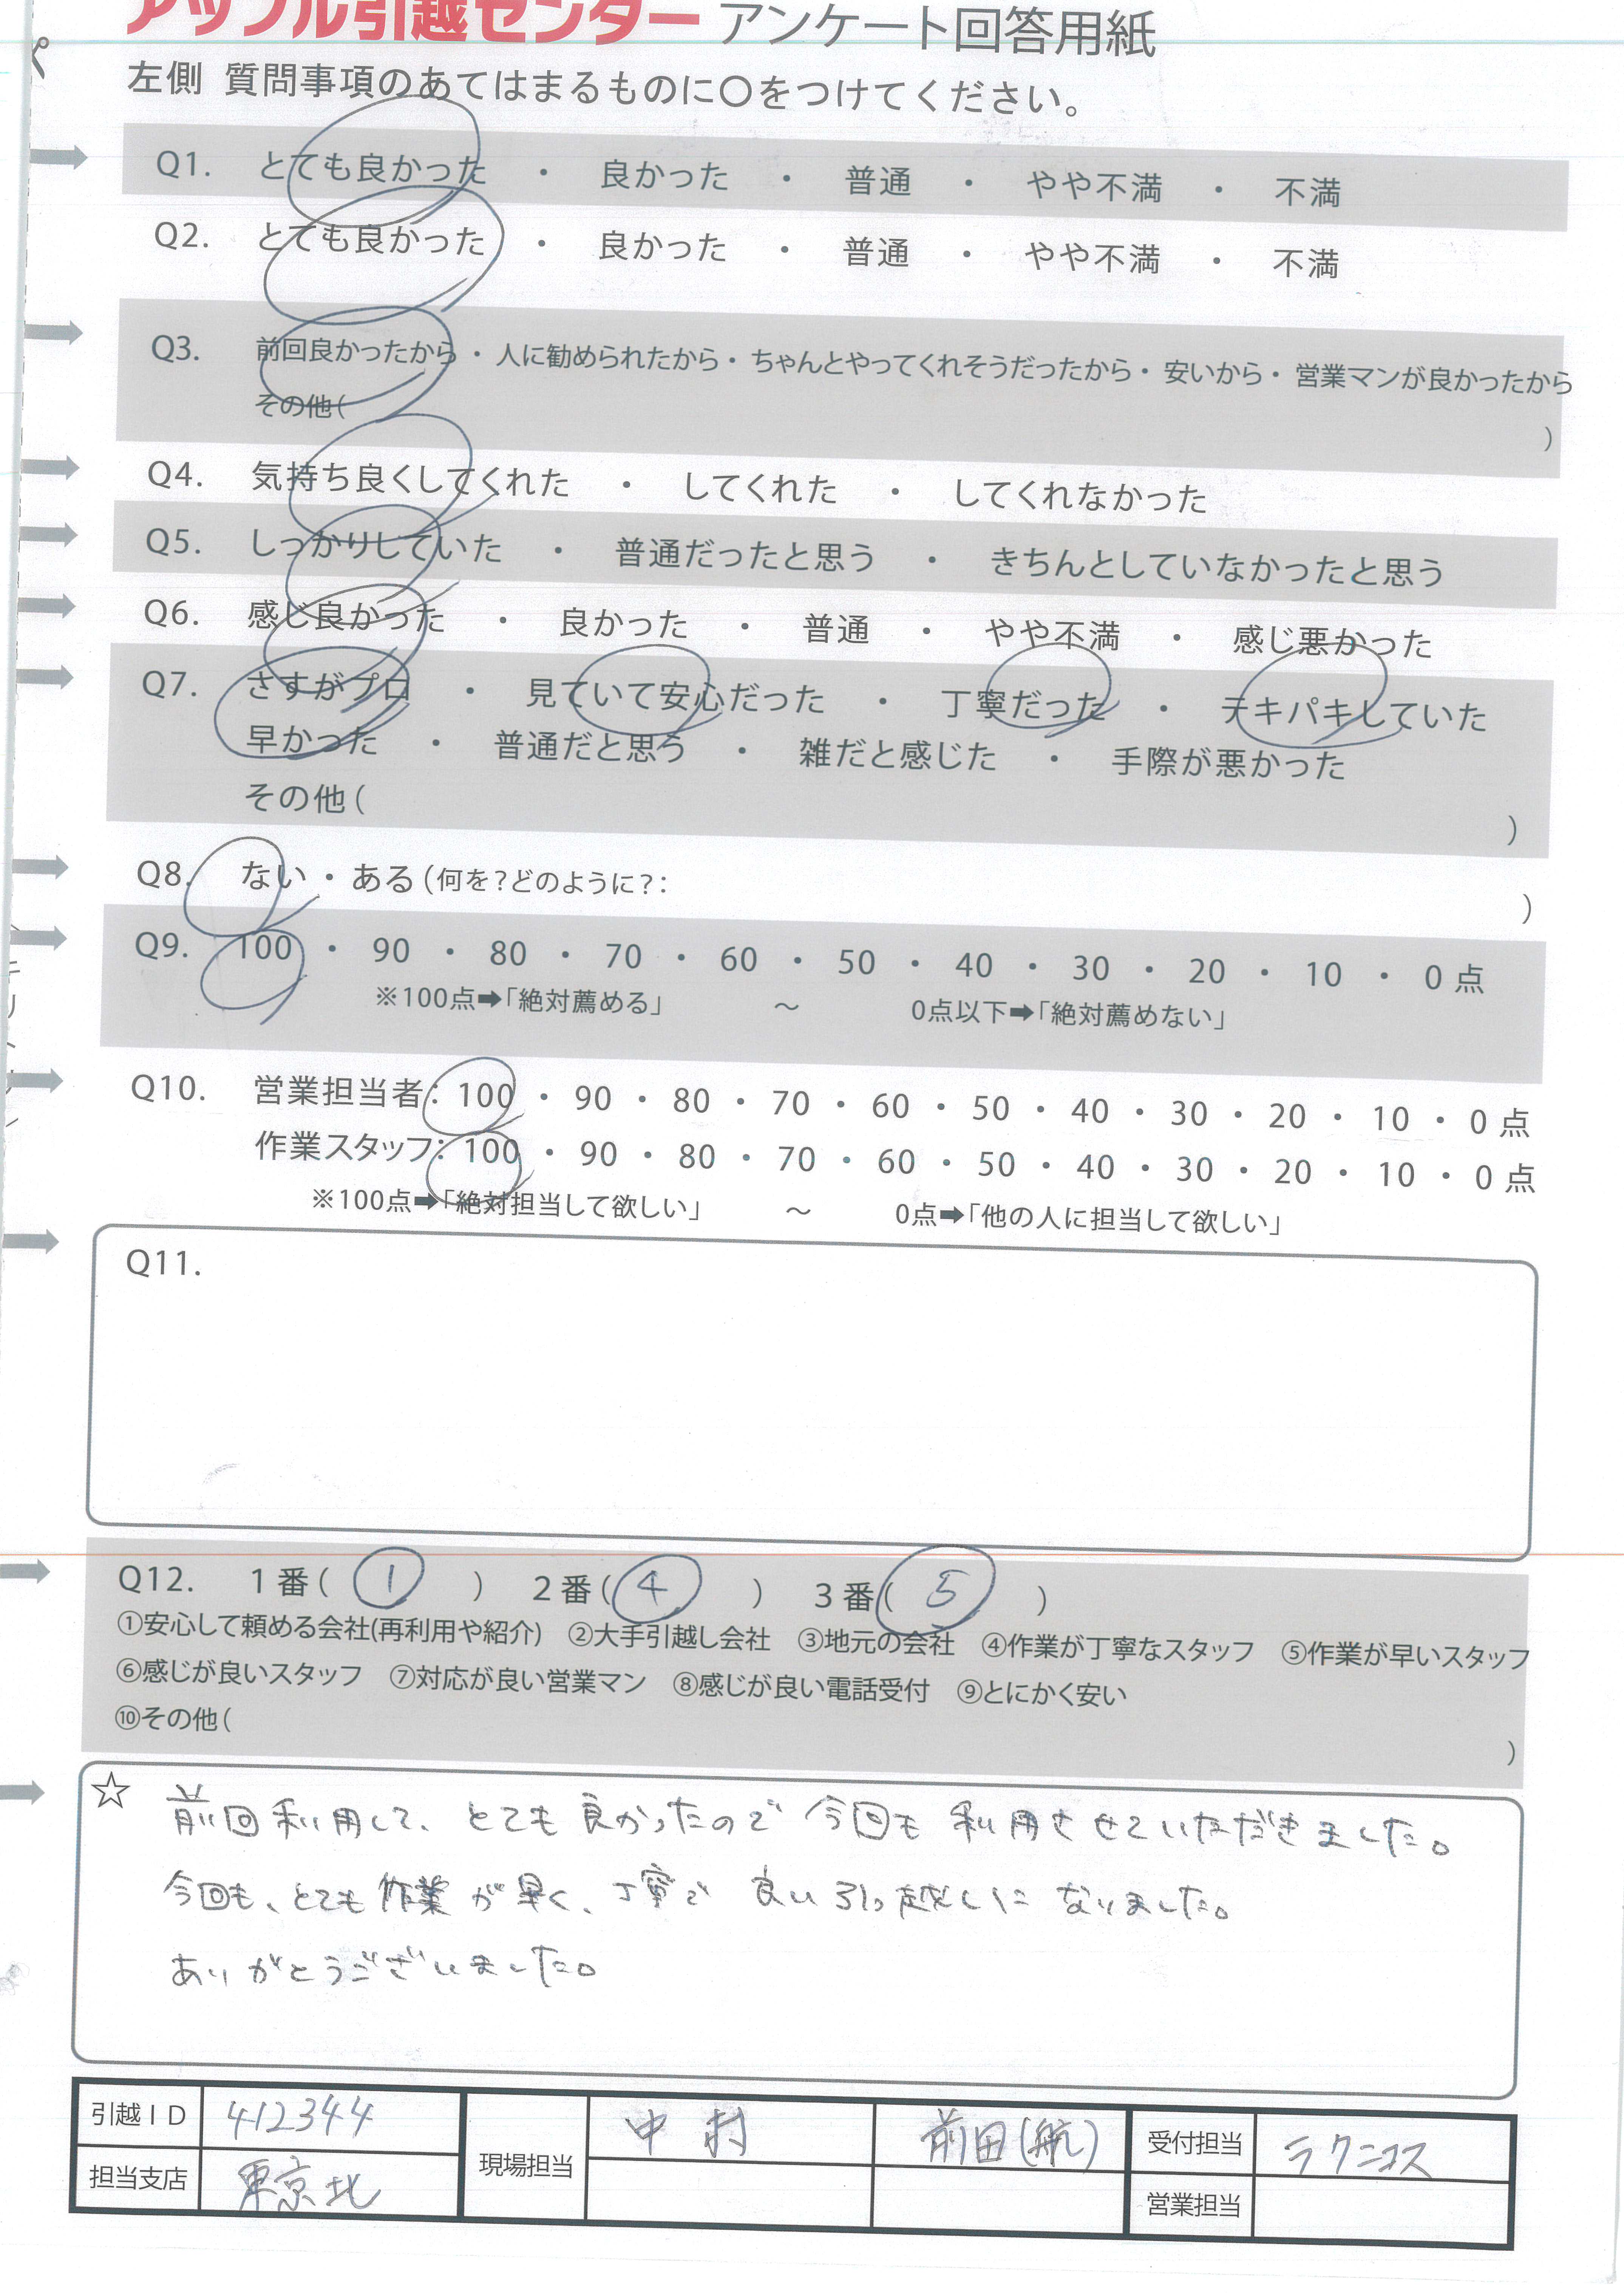 アップル引越センター アンケート回答用紙
左側 質問事項のあてはまるものに〇をつけてください。
Q1. とても良かった ・ 良かった ・ 普通 ・ やや不満 ・ 不満
Q2. とても良かった ・ 良かった ・ 普通 ・ やや不満 ・ 不満
Q3. 前回良かったから ・ 人に勧められたから・ ちゃんとやってくれそうだったから・ 安いから・ 営業マンが良かったから
その他( )
Q4. 気持ち良くしてくれた ・ してくれた ・ してくれなかった
Q5. しっかりしていた ・ 普通だったと思う ・ きちんとしていなかったと思う
Q6. 感じ良かった ・ 良かった ・ 普通 ・ やや不満 ・ 感じ悪かった
Q7. さすがプロ ・ 見ていて安心だった ・ 丁寧だった ・ テキパキしていた
早かった ・ 普通だと思う ・ 雑だと感じた ・ 手際が悪かった
その他( )
Q8. ない ・ ある(何を?どのように?: )
Q9. 100 ・ 90 ・ 80 ・ 70 ・ 60 ・ 50 ・ 40 ・ 30 ・ 20 ・ 10 ・ 0 点
※100点➡「絶対薦める」 〜 0点以下➡「絶対薦めない」
Q10. 営業担当者: 100 ・ 90 ・ 80 ・ 70 ・ 60 ・ 50 ・ 40 ・ 30 ・ 20 ・ 10 ・ 0 点
作業スタッフ: 100 ・ 90 ・ 80 ・ 70 ・ 60 ・ 50 ・ 40 ・ 30 ・ 20 ・ 10 ・ 0 点
※100点➡「絶対担当して欲しい」 〜 0点➡「他の人に担当して欲しい」
Q11.
Q12. 1番( 1 ) 2番( 4 ) 3番( 5 )
①安心して頼める会社(再利用や紹介) ②大手引越し会社 ③地元の会社 ④作業が丁寧なスタッフ ⑤作業が早いスタッフ
⑥感じが良いスタッフ ⑦対応が良い営業マン ⑧感じが良い電話受付 ⑨とにかく安い
⑩その他( )
☆ 前回利用して、とても良かったので今回も利用させていただきました。
今回も、とても作業が早く、丁寧で良い引っ越しになりました。
ありがとうございました。
引越ID 412344 現場担当 中村 前田(航) 受付担当 ラクニコス
担当支店 東京北 営業担当